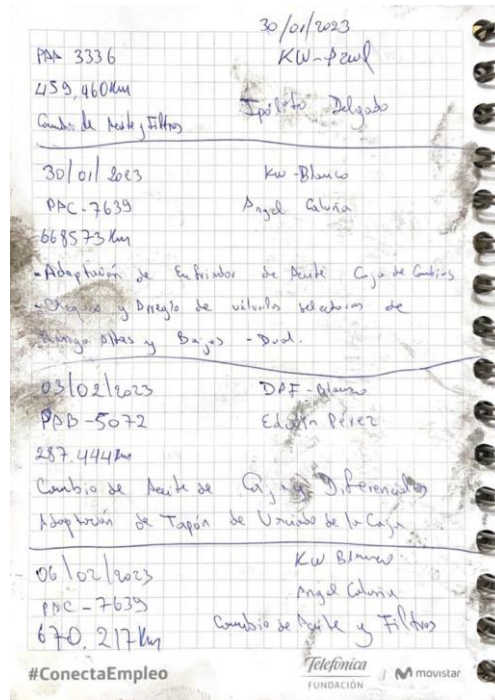 30/01/2023
PAA 3336 KW-Azul
459.460Km
Ipólito Delgado
Cambio de Aceite y Filtros
30/01/2023 KW-Blanco
PAC-7639 Angel
668573Km
-Adaptación de Enfriador de Aceite Caja de Cambios
-Chequeo y Arreglo de válvulas selectoras de
Rango Altas y Bajas - Dual.
03/02/2023 DAF-Blanco
PAB-5072 Edwin Pérez
287.444Km
Cambio de Aceite de Caja y Diferenciales
Adaptación de Tapón de de la Caja
06/02/2023 KW Blanco
PAC-7639 Angel
670.217Km Cambio de Aceite y Filtros
#ConectaEmpleo Telefónica FUNDACIÓN movistar